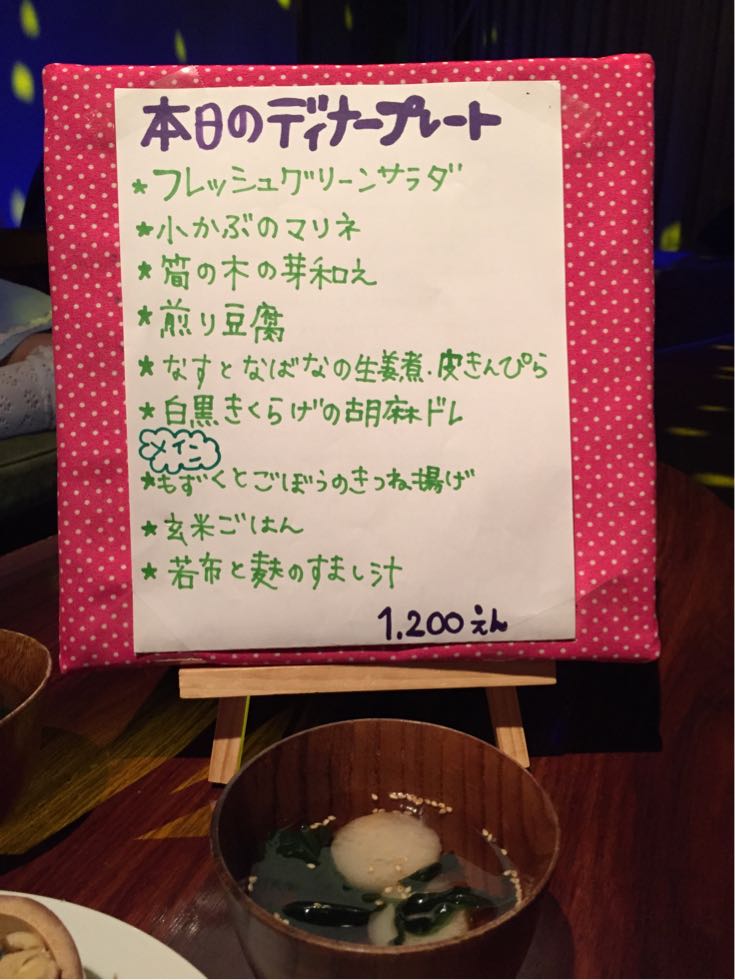 本日のディナープレート
★フレッシュグリーンサラダ
★小かぶのマリネ
★筍の木の芽和え
★煎り豆腐
★なすとなばなの生姜煮・皮きんぴら
★白黒きくらげの胡麻ドレ
メイン
★もずくとごぼうのきつね揚げ
★玄米ごはん
★若布と麩のすまし汁
1.200えん